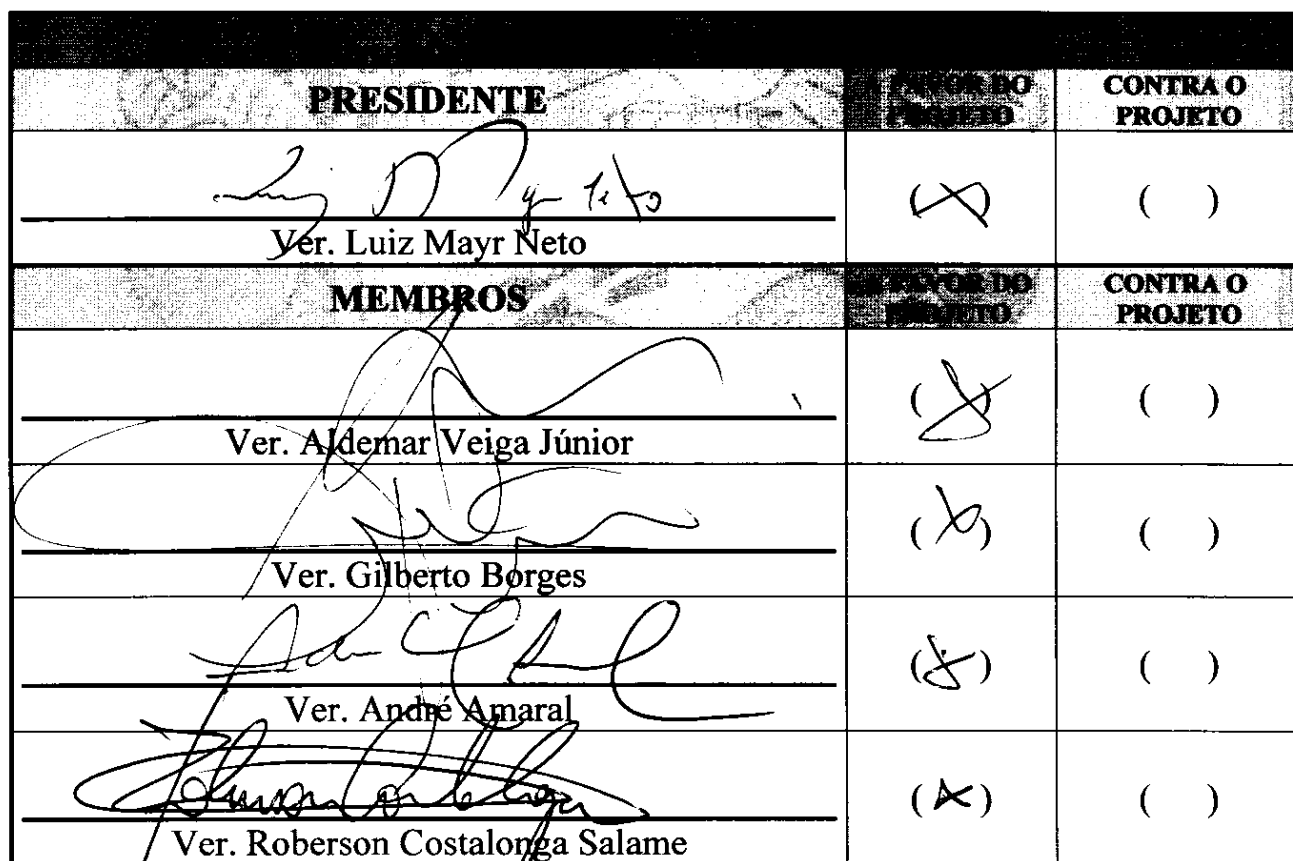 PRESIDENTE
A FAVOR DO
PROJETO
CONTRA O
PROJETO
Ver. Luiz Mayr Neto
(X)
( )
MEMBROS
A FAVOR DO
PROJETO
CONTRA O
PROJETO
Ver. Aldemar Veiga Júnior
(X)
( )
Ver. Gilberto Borges
(X)
( )
Ver. André Amaral
(X)
( )
Ver. Roberson Costalonga Salame
(X)
( )